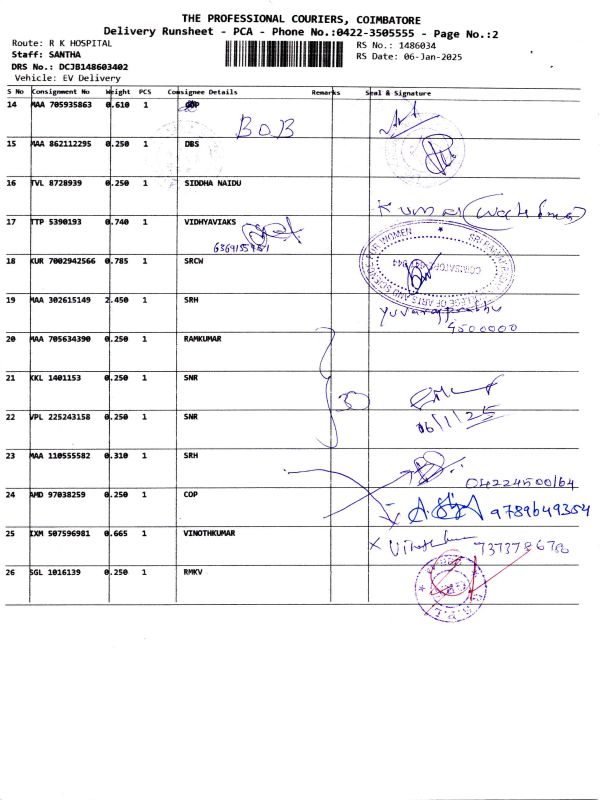 THE PROFESSIONAL COURIERS, COIMBATORE
Delivery Runsheet - PCA - Phone No.:0422-3505555 - Page No.:2
Route: R K HOSPITAL
RS No.: 1486034
Staff: SANTHA
RS Date: 06-Jan-2025
DRS No.: DCJB148603402
Vehicle: EV Delivery
S No Consignment No Weight PCS Consignee Details Remarks Seal & Signature
14 MAA 705935863 0.610 1
BOB
15 MAA 862112295 0.250 1 DBS
16 TVL 8728939 0.250 1 SIDDHA NAIDU
Kumar
17 TTP 5390193 0.740 1 VIDHYAVIAKS
FOR WOMEN
18 KUR 7002942566 0.785 1 SRCW
COLLEGE OF ARTS AND SCIENCE
19 MAA 302615149 2.450 1 SRH
4500000
20 MAA 705634390 0.250 1 RAMKUMAR
21 KKL 1401153 0.250 1 SNR
22 VPL 225243158 0.250 1 SNR
06/1/25
23 MAA 110555582 0.310 1 SRH
04224500164
24 AMD 97038259 0.250 1 COP
9789649354
25 IXM 507596981 0.665 1 VINOTHKUMAR
26 SGL 1016139 0.250 1 RMKV